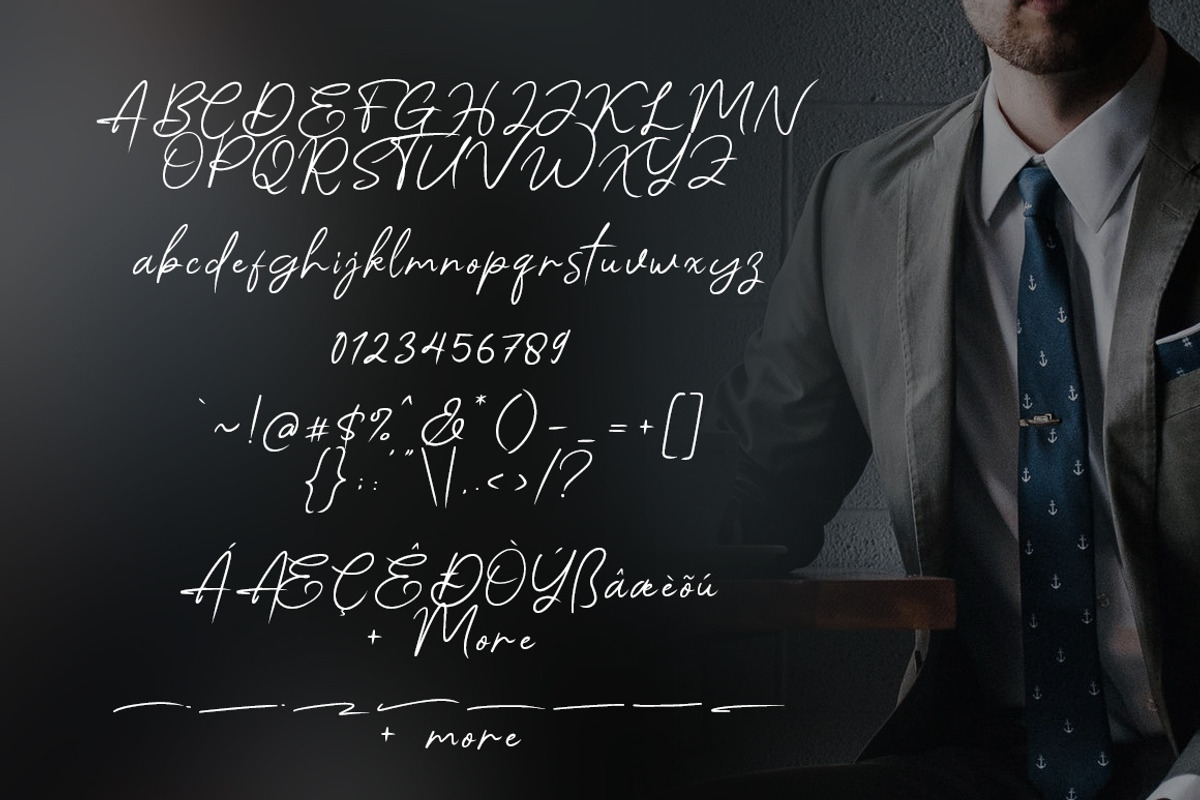 ABCDEFGHIJKLMN
OPQRSTUVWXYZ
abcdefghijklmnopqrstuvwxyz
0123456789
`~!@#$%^&*()-_=+[]
{};:'"\|,.<>/?
ÁÆÇÊÐÒÝßâæèõú
+ More
+ more